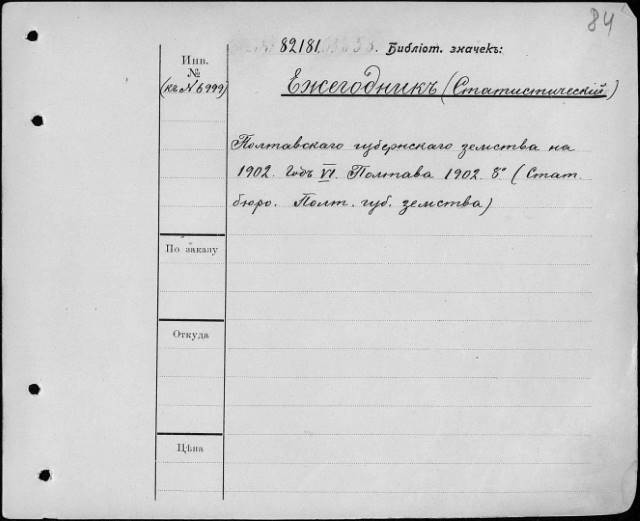 84
82181. Библіот. значекъ:
Инв.
№
(къ № 6999)
Ежегодникъ (Статистическій)
Полтавскаго губернскаго земства на
1902. Годъ VI. Полтава 1902. 8° (Стат.
бюро. Полт. губ. земства)
По заказу
Откуда
Цѣна